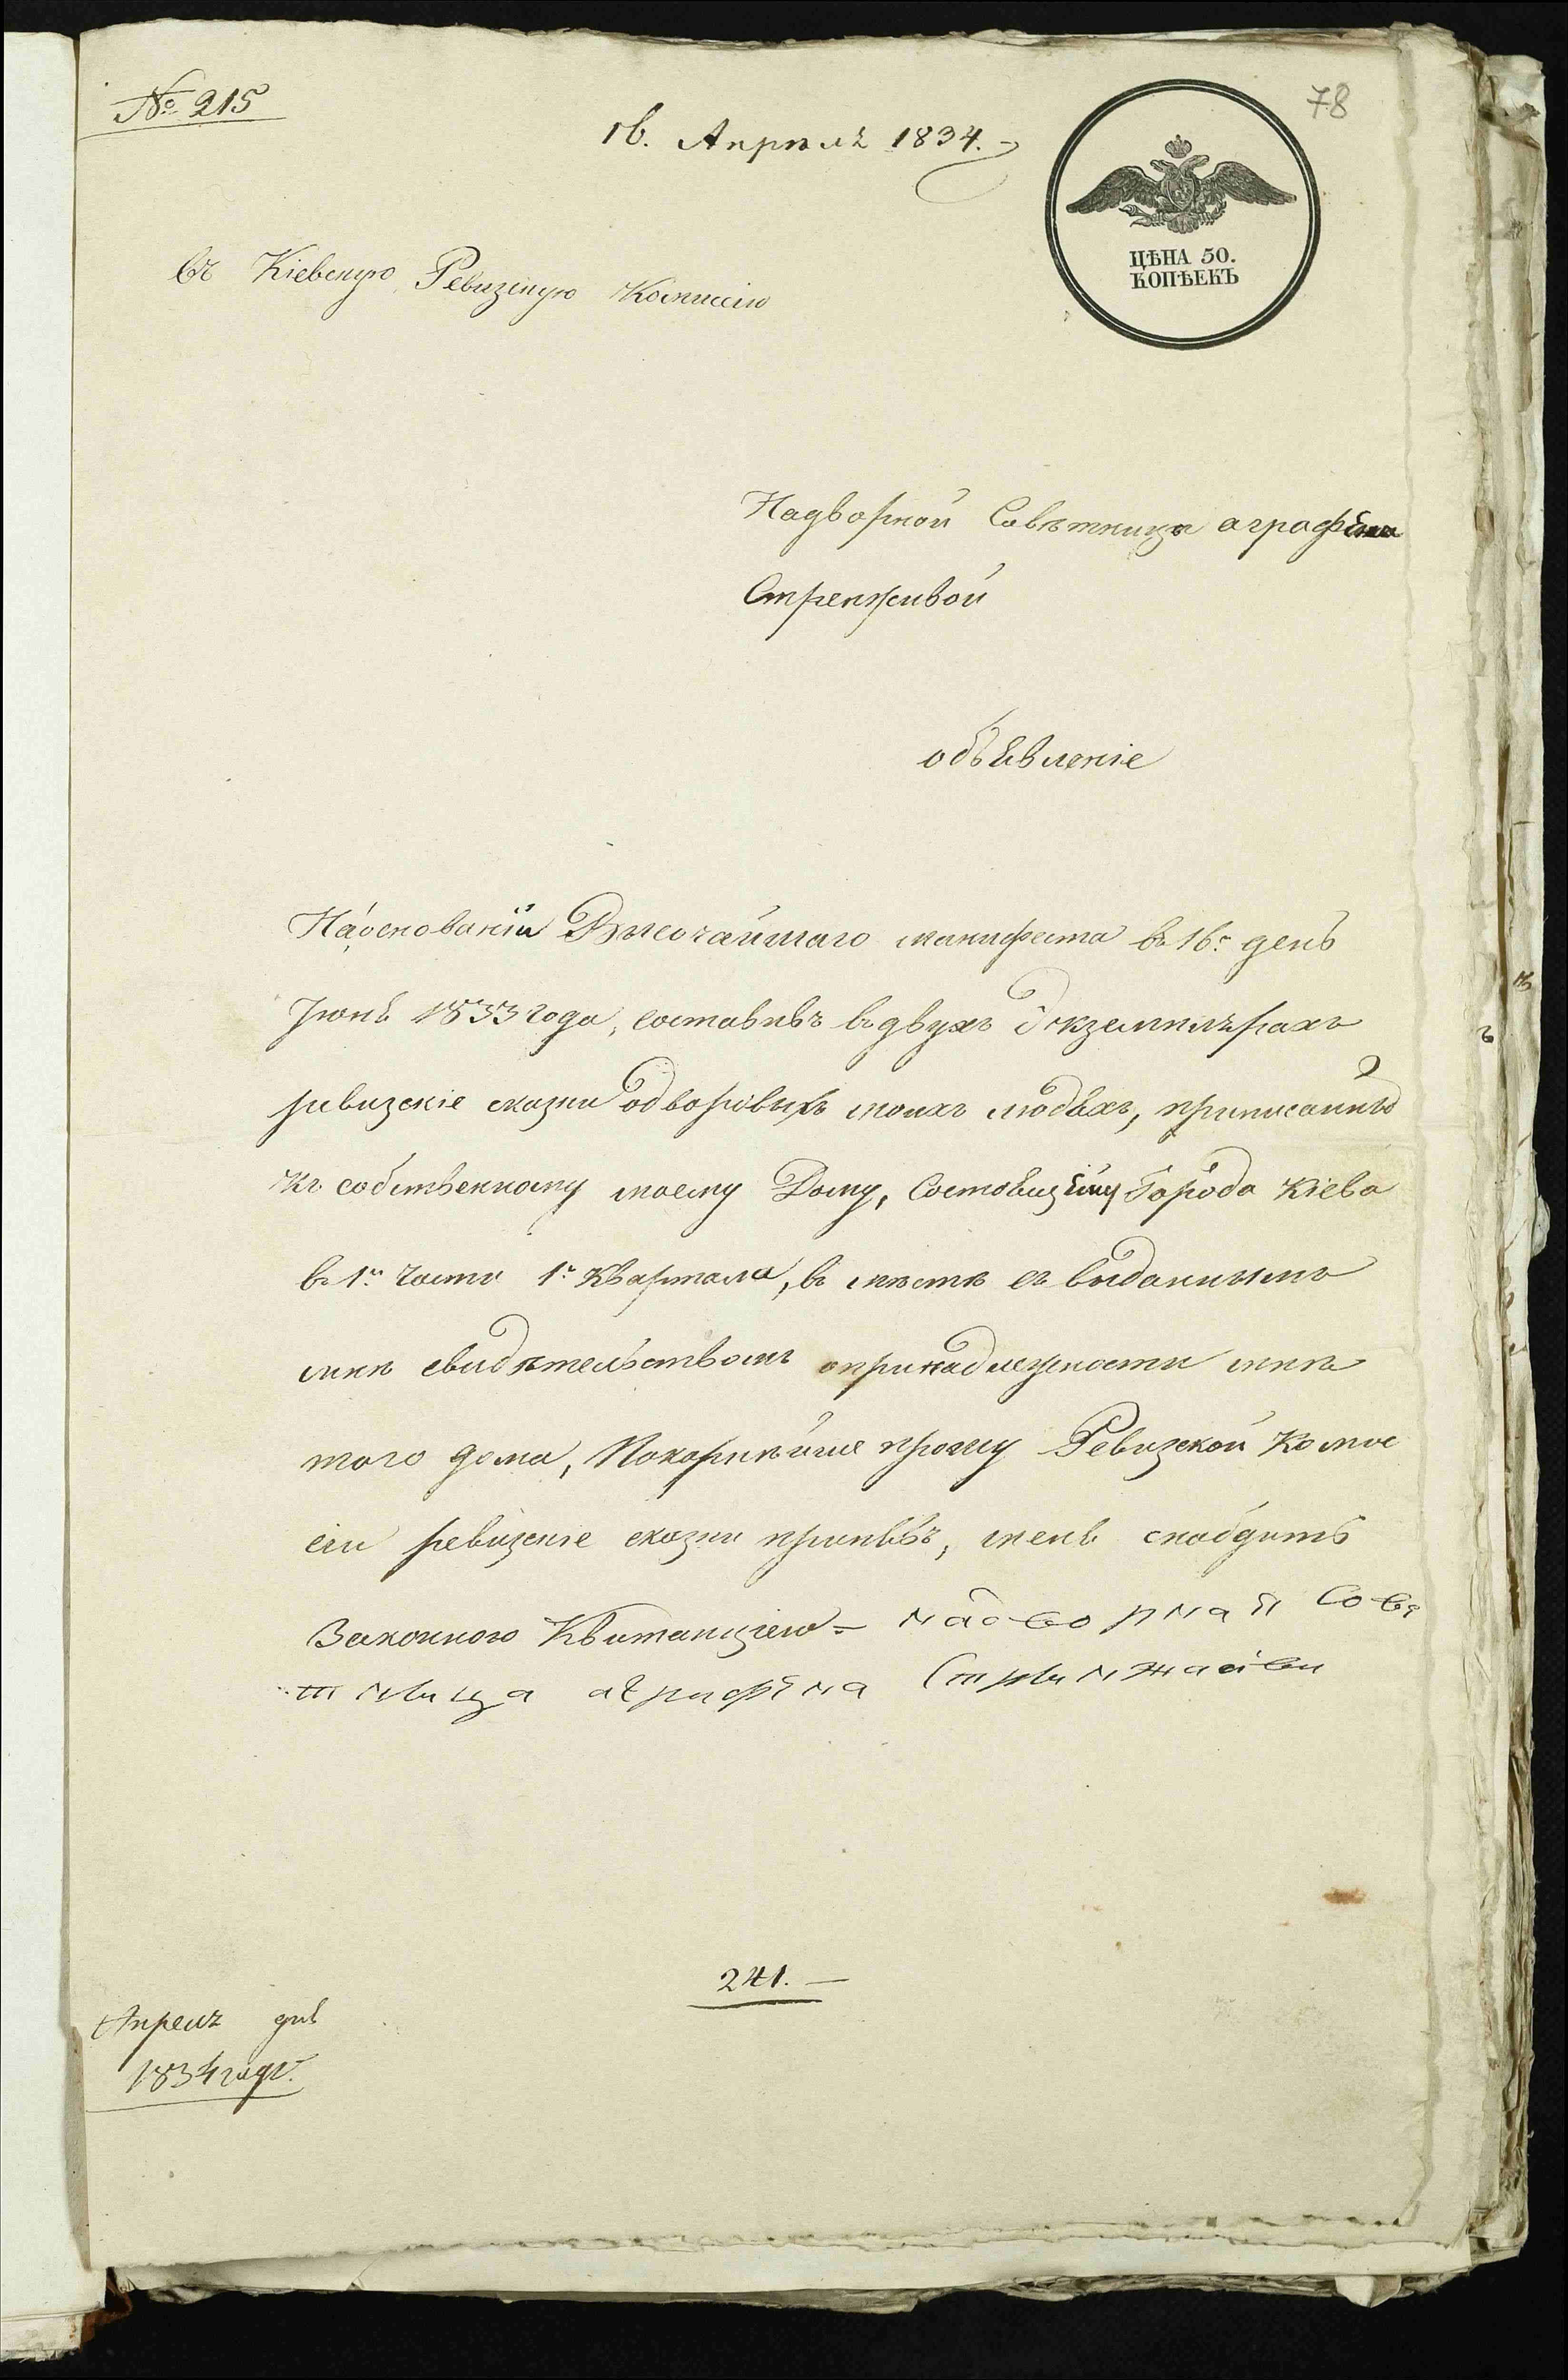 № 215
78
16. Апрѣля 1834.
ЦѢНА 50.
КОПѢЕКЪ
Въ Кіевскую Ревизскую Комиссію
Надворной Совѣтницы аграфены
Стренживой
объявленіе
На основаніи Высочайшаго манифеста въ 16й день
Іюня 1833 года, составивъ въ двухъ экземплярахъ
ревизскіе сказки о дворовыхъ моихъ людяхъ, приписанныхъ
къ собственному моему Дому, Состоящему Города Кіева
въ 1й части 1го Квартала, в мѣстѣ съ выданнымъ
мнѣ свидѣтельствомъ о принадлежности мнѣ
того дома, Покорнѣйше прошу Ревизской Комис
сіи ревизскіе сказки принявъ, меня снабдить
Законною Квитанціею = надворная Совѣ
тница аграфена
241. —
Апреля дня
1834 года.